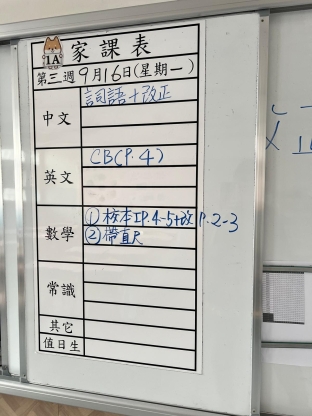 1A 家課表
第三週9月16日(星期一)
中文 詞語+改正
英文 CB(P.4)
數學 ①校本IP.4-5+改P.2-3
②帶直尺
常識
其它
值日生